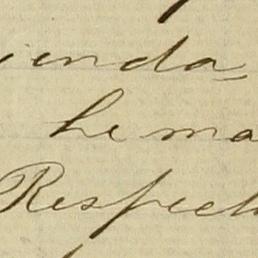 ienda,
he ma
Respect